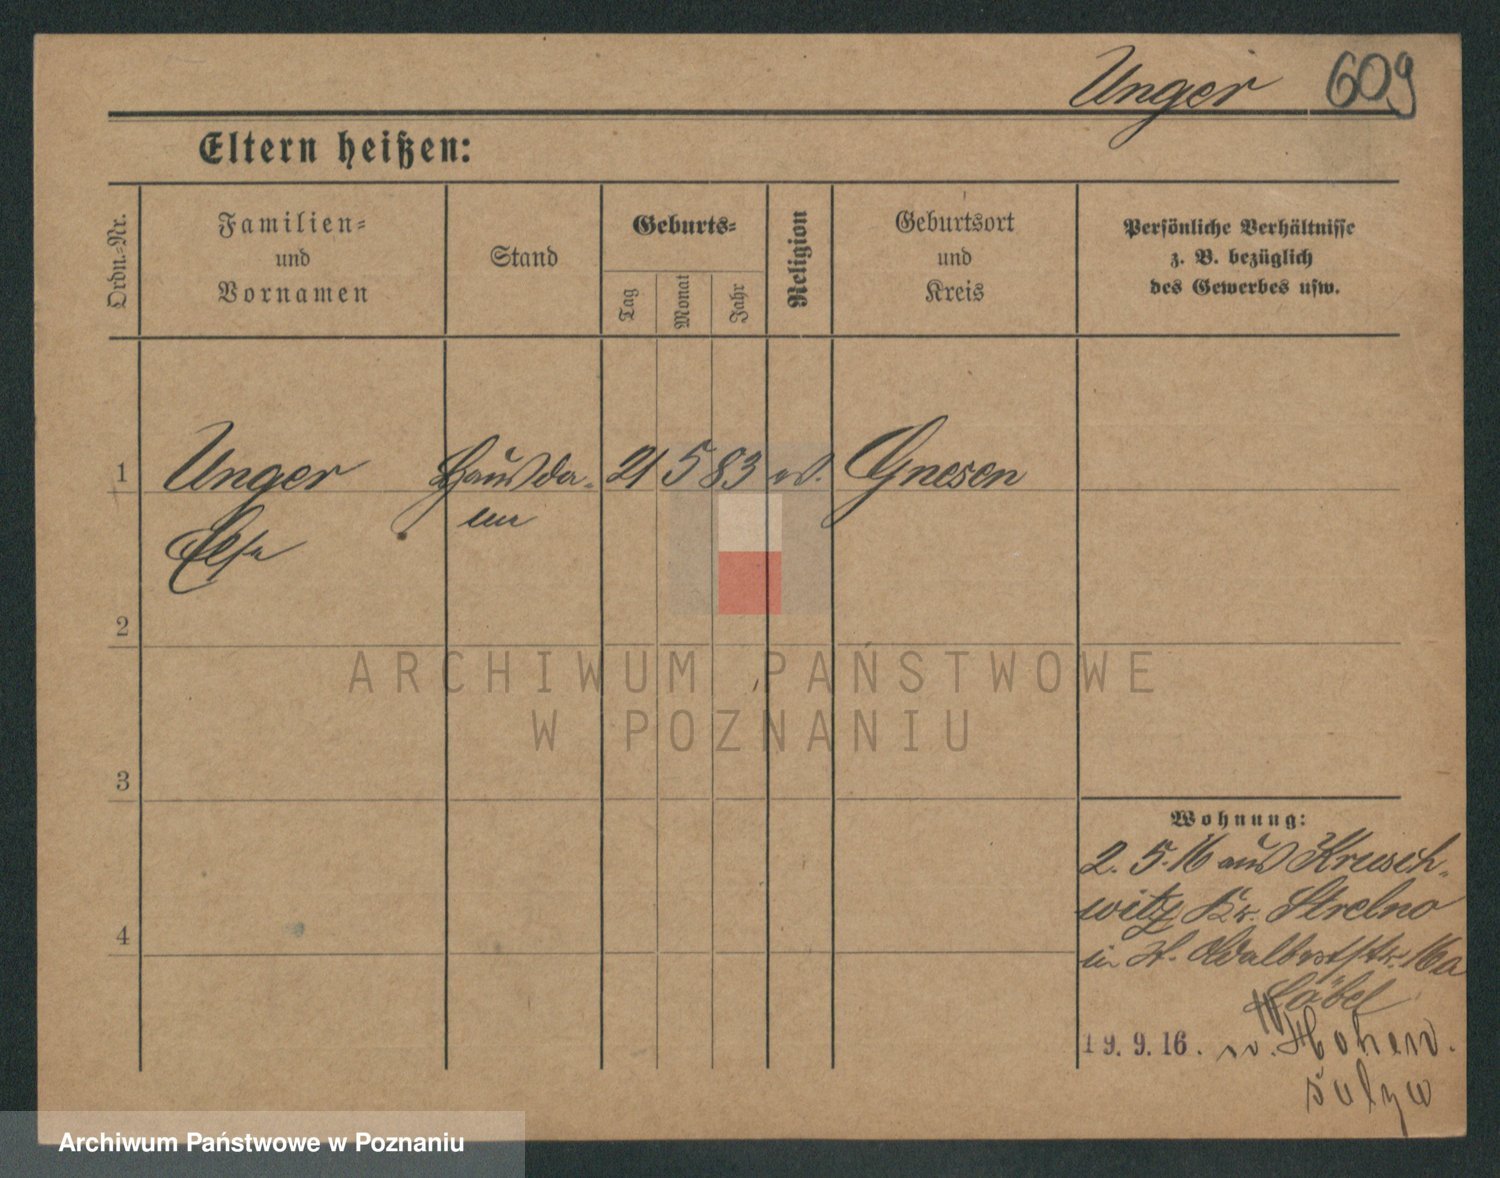 Unger 609
Eltern heißen:
Ordn.-Nr.
Familien-
und
Vornamen
Stand
Geburts-
Tag
Monat
Jahr
Religion
Geburtsort
und
Kreis
Persönliche Verhältnisse
z. B. bezüglich
des Gewerbes usw.
1 Unger Hausda- 21 5 83 ev. Gnesen
me
Else
2
3
4
ARCHIWUM PAŃSTWOWE
W POZNANIU
Wohnung:
2. 5. 16 aus Krusch-
witz Kr. Strelno
in Adalbertstr. 16a
Löbel
19. 9. 16. n. Hohen
Archiwum Państwowe w Poznaniu